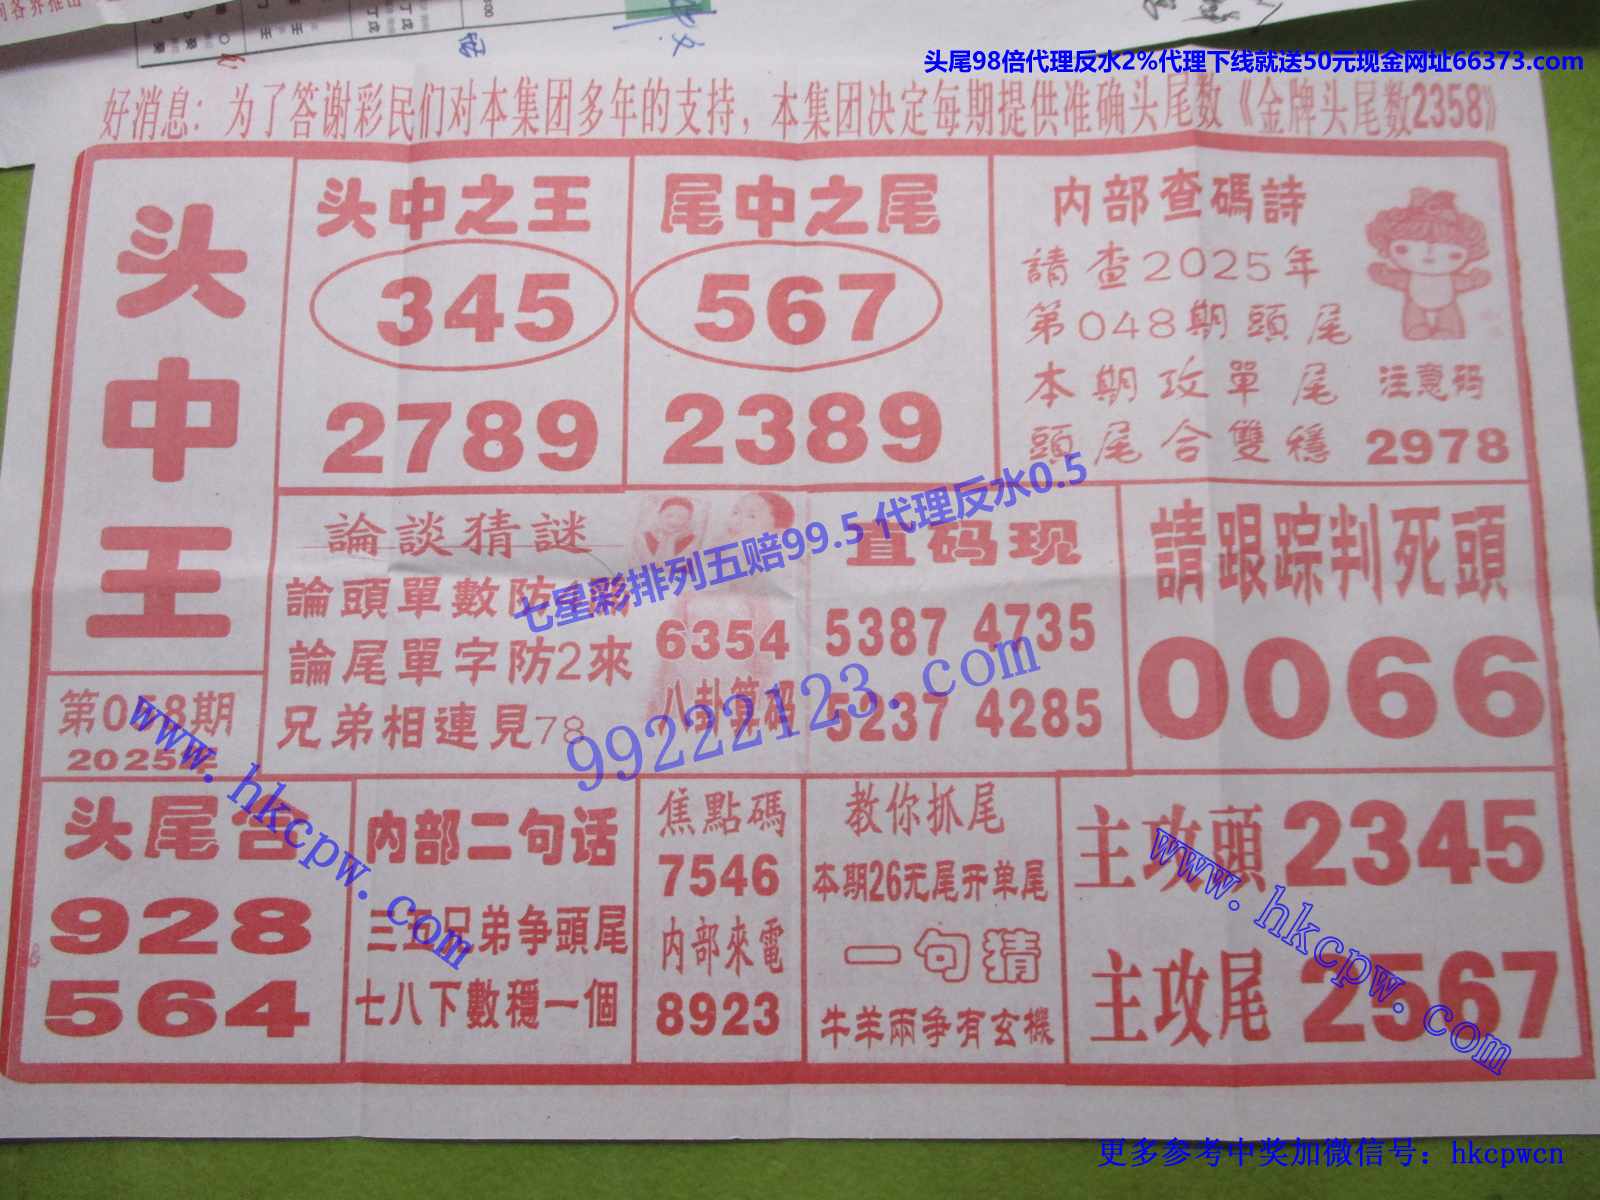 头尾98倍代理反水2%代理下线就送50元现金网址66373.com
好消息：为了答谢彩民们对本集团多年的支持，本集团决定每期提供准确头尾数《金牌头尾数2358》
头中王
第048期
2025年
头中之王
345
2789
尾中之尾
567
2389
内部查碼詩
請查2025年
第048期頭尾
本期攻單尾
頭尾合雙穩
注意码
2978
論談猜謎
論頭單數防
論尾單字防2來
兄弟相連見78
6354
八卦算码
直码现
5387 4735
5237 4285
請跟踪判死頭
0066
头尾合
928
564
内部二句话
三五兄弟争頭尾
七八下數穩一個
焦點碼
7546
内部來電
8923
教你抓尾
本期26无尾开单尾
一句猜
牛羊兩争有玄機
主攻頭2345
主攻尾2567
七星彩排列五赔99.5 代理反水0.5
99222123.com
www.hkcpw.com
www.hkcpw.com
更多参考中奖加微信号：hkcpwcn